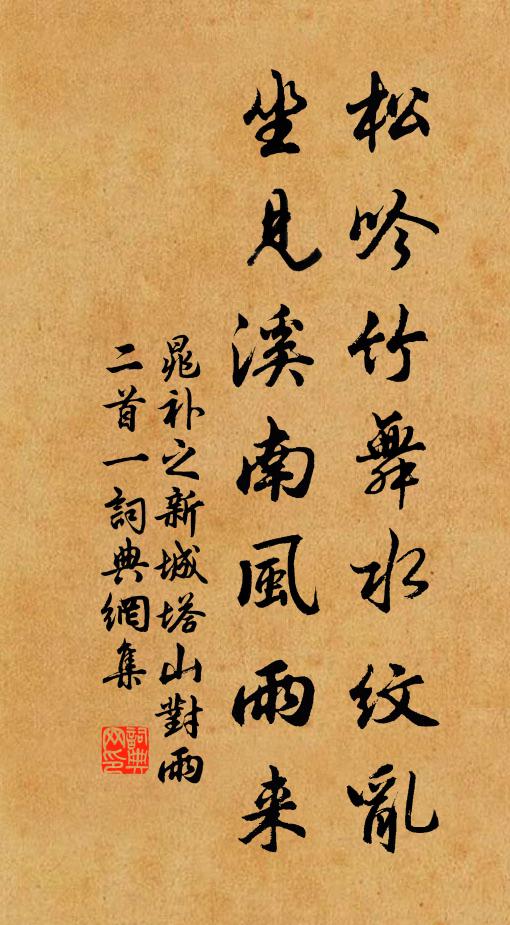 松吟竹舞水紋亂
坐見溪南風雨来
晁补之新城塔山對雨
二首一詞典網集
詞典网印